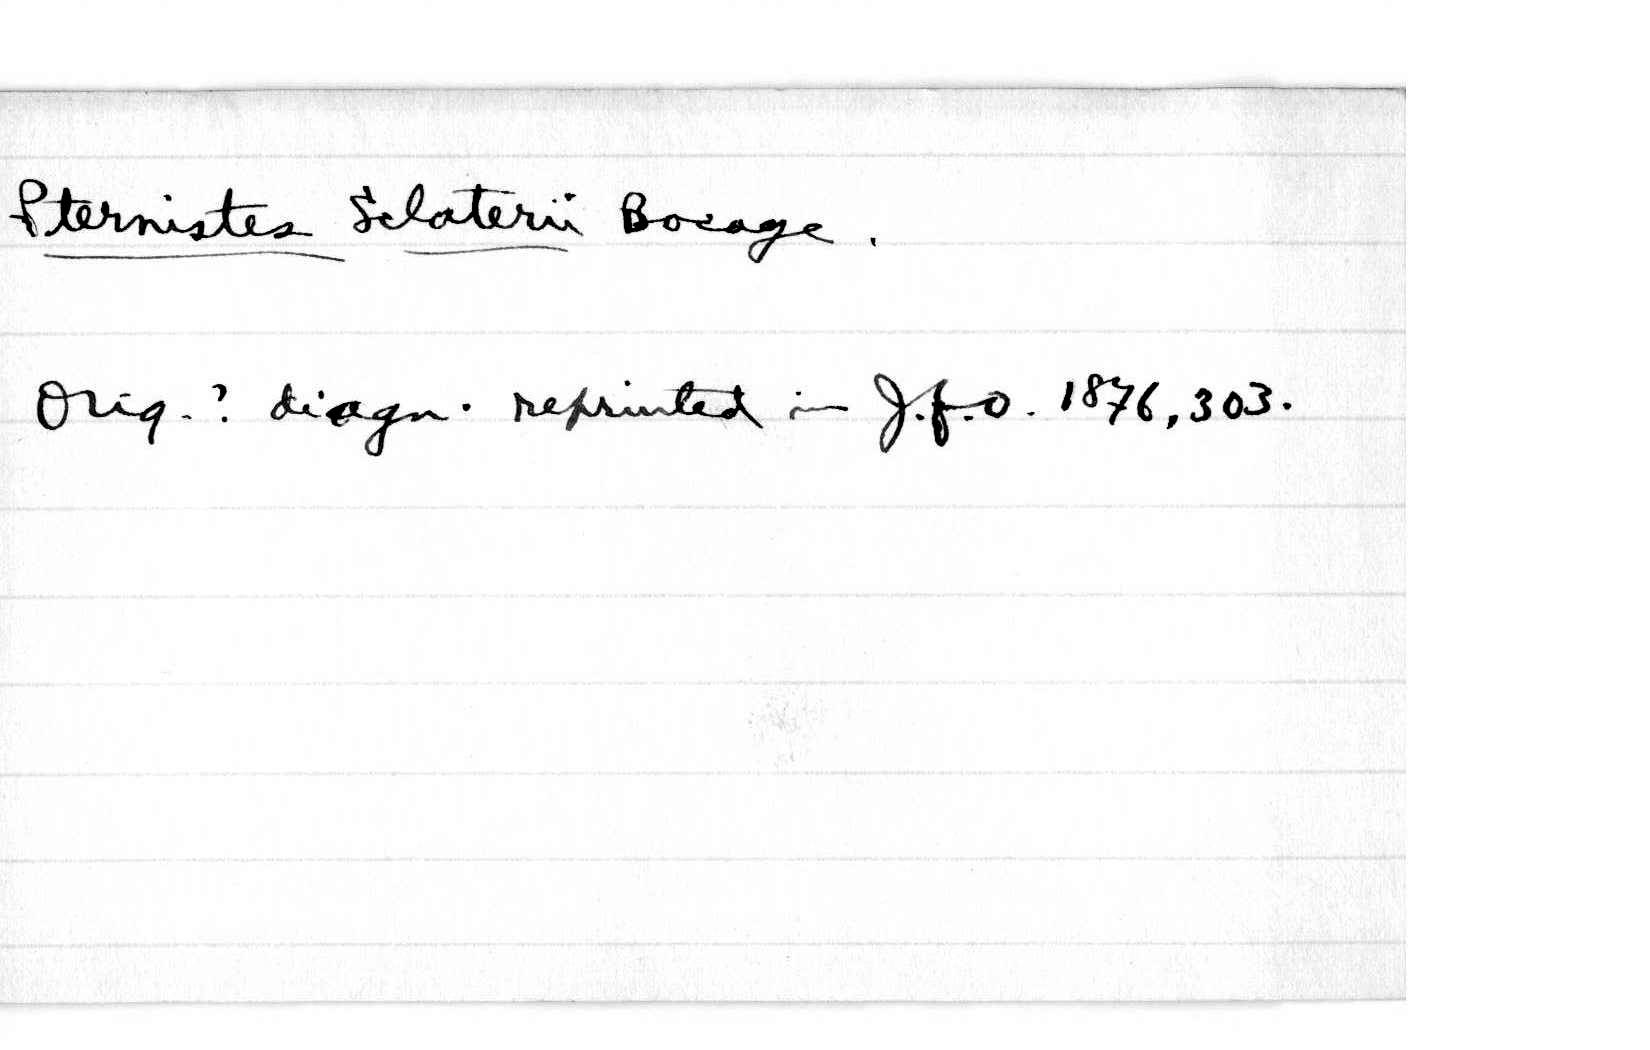 Pternistes Sclaterii Bocage.
Orig.? diagn. reprinted in J.f.O. 1876, 303.